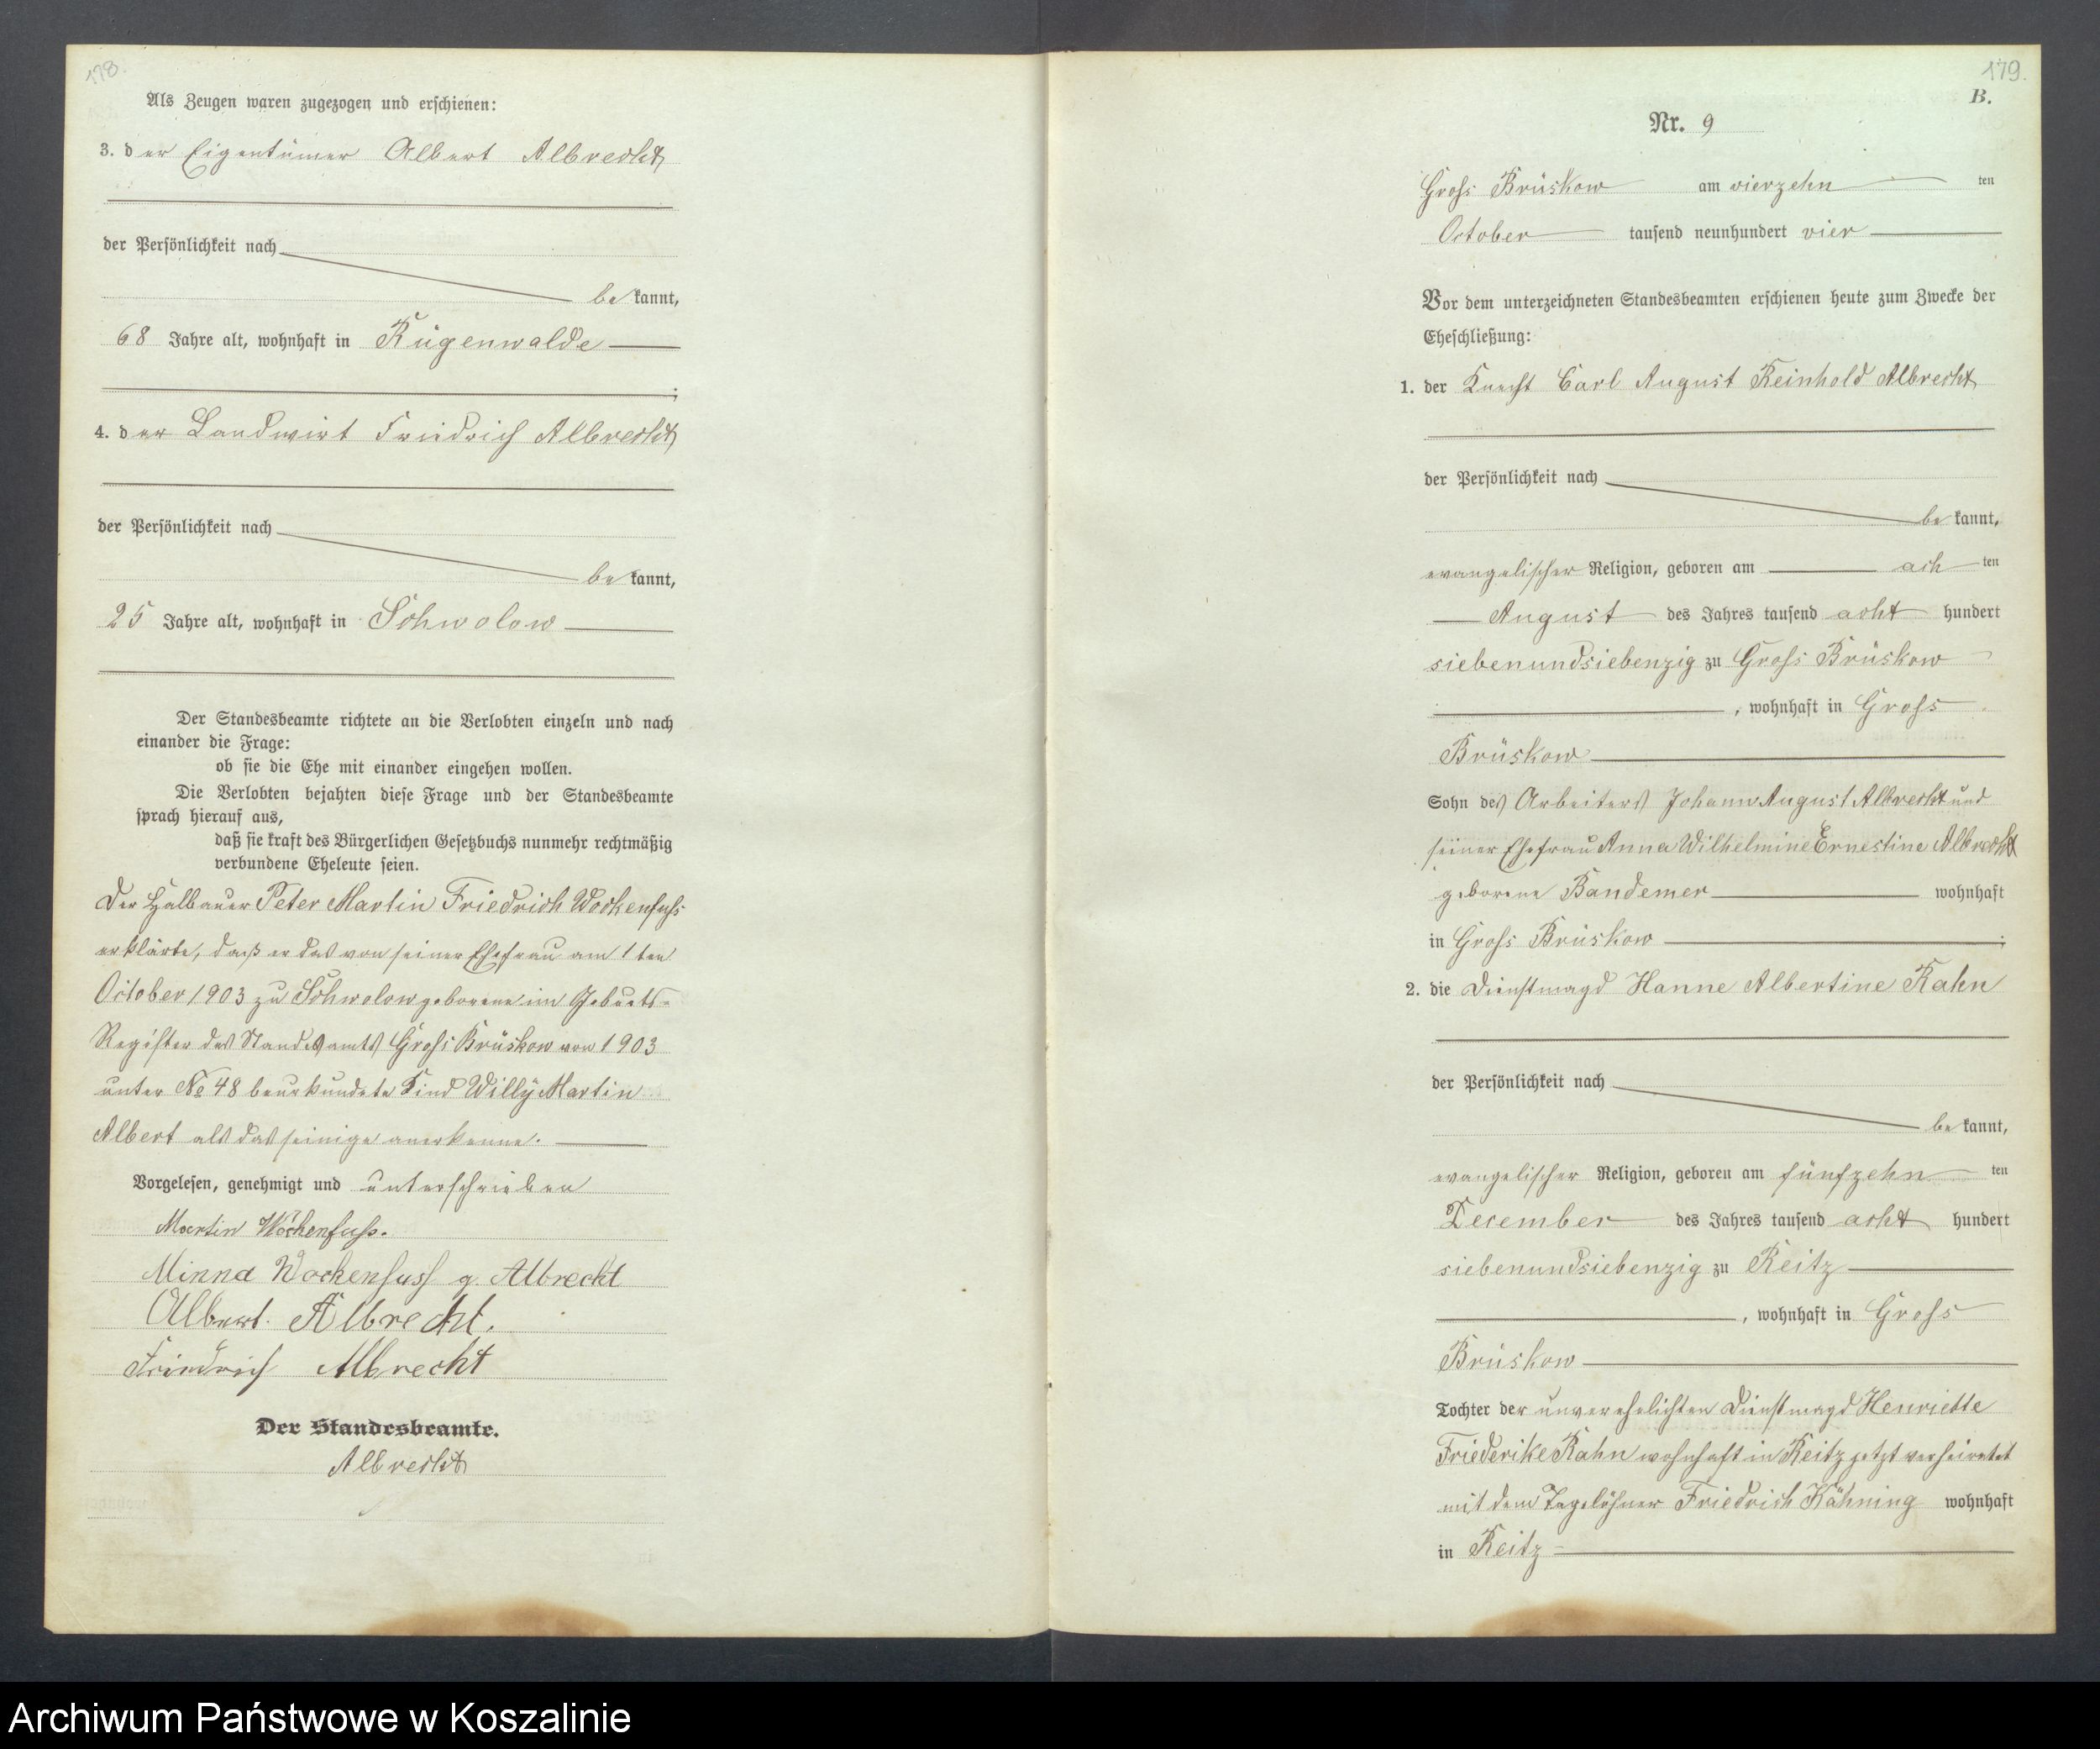 178.
Als Zeugen waren zugezogen und erschienen:
3. der Eigentümer Albert Albrecht
der Persönlichkeit nach
bekannt,
68 Jahre alt, wohnhaft in Rügenwalde
;
4. der Landwirt Friedrich Albrecht
der Persönlichkeit nach
bekannt,
25 Jahre alt, wohnhaft in Schwolow
Der Standesbeamte richtete an die Verlobten einzeln und nach
einander die Frage:
ob sie die Ehe mit einander eingehen wollen.
Die Verlobten bejahten diese Frage und der Standesbeamte
sprach hierauf aus,
daß sie kraft des Bürgerlichen Gesetzbuchs nunmehr rechtmäßig
verbundene Eheleute seien.
Der Halbauer Peter Martin Friedrich Wockenfuss
erklärte, daß er das von seiner Ehefrau am 1ten
October 1903 zu Schwolow geborene im Geburts-
Register des Standesamts Gross Brüskow von 1903
unter No 48 beurkundete Kind Willy Martin
Albert als das seinige anerkenne.
Vorgelesen, genehmigt und unterschrieben
Martin Wockenfuss.
Minna Wockenfuss g. Albrecht
Albert. Albrecht.
Friedrich Albrecht
Der Standesbeamte.
Albrecht
179.
B.
Nr. 9
Gross Brüskow am vierzehn ten
October tausend neunhundert vier
Vor dem unterzeichneten Standesbeamten erschienen heute zum Zwecke der
Eheschließung:
1. der Knecht Carl August Reinhold Albrecht
der Persönlichkeit nach
bekannt,
evangelischer Religion, geboren am ach ten
August des Jahres tausend acht hundert
siebenundsiebenzig zu Gross Brüskow
, wohnhaft in Gross
Brüskow
Sohn des Arbeiters Johann August Albrecht und
seiner Ehefrau Anna Wilhelmine Ernestine Albrecht
geborene Bandemer wohnhaft
in Gross Brüskow ;
2. die Dienstmagd Hanne Albertine Rahn
der Persönlichkeit nach
bekannt,
evangelischer Religion, geboren am fünfzehn ten
December des Jahres tausend acht hundert
siebenundsiebenzig zu Reitz
, wohnhaft in Gross
Brüskow
Tochter der unverehelichten Dienstmagd Henriette
Friederike Rahn wohnhaft in Reitz jetzt verheiratet
mit dem Tagelöhner Friedrich Kähning wohnhaft
in Reitz
Archiwum Państwowe w Koszalinie